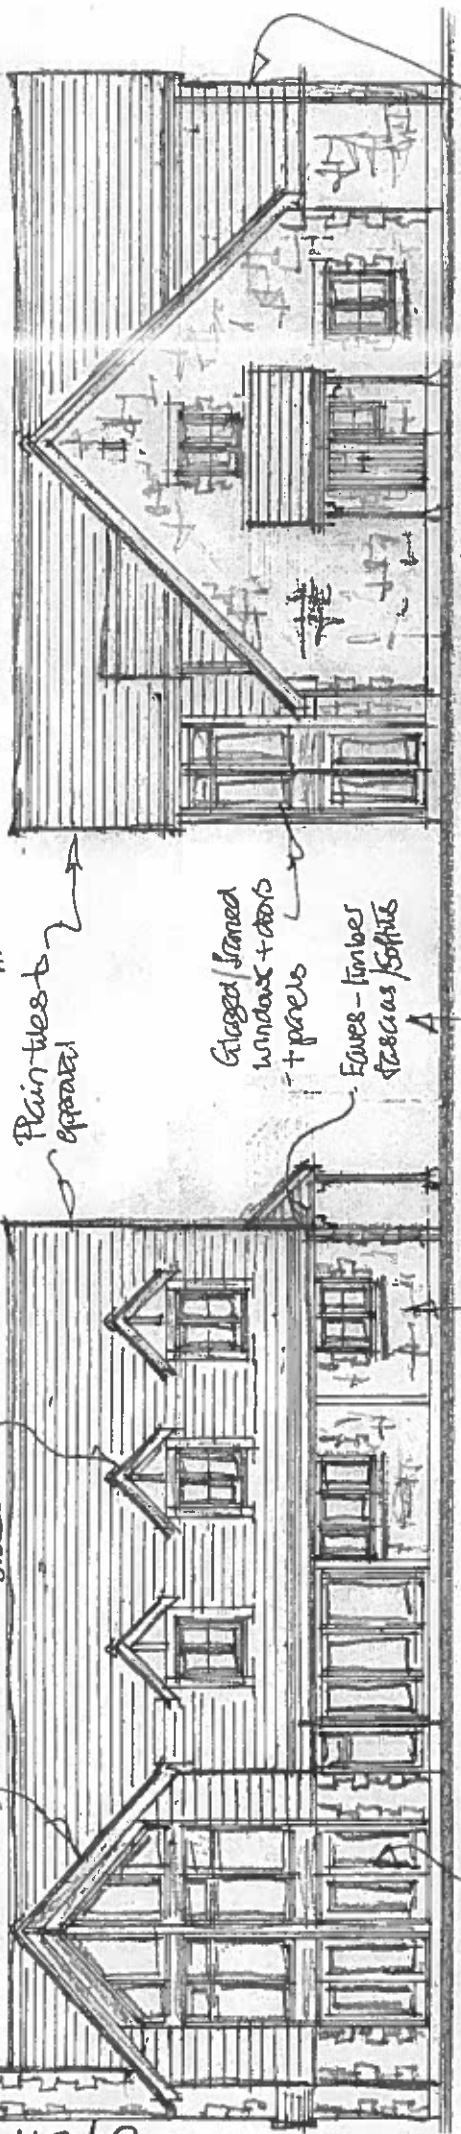 Plain tiles to
approval
Glazed/framed
windows + doors
+ panels
Eaves - timber
fascias/soffits